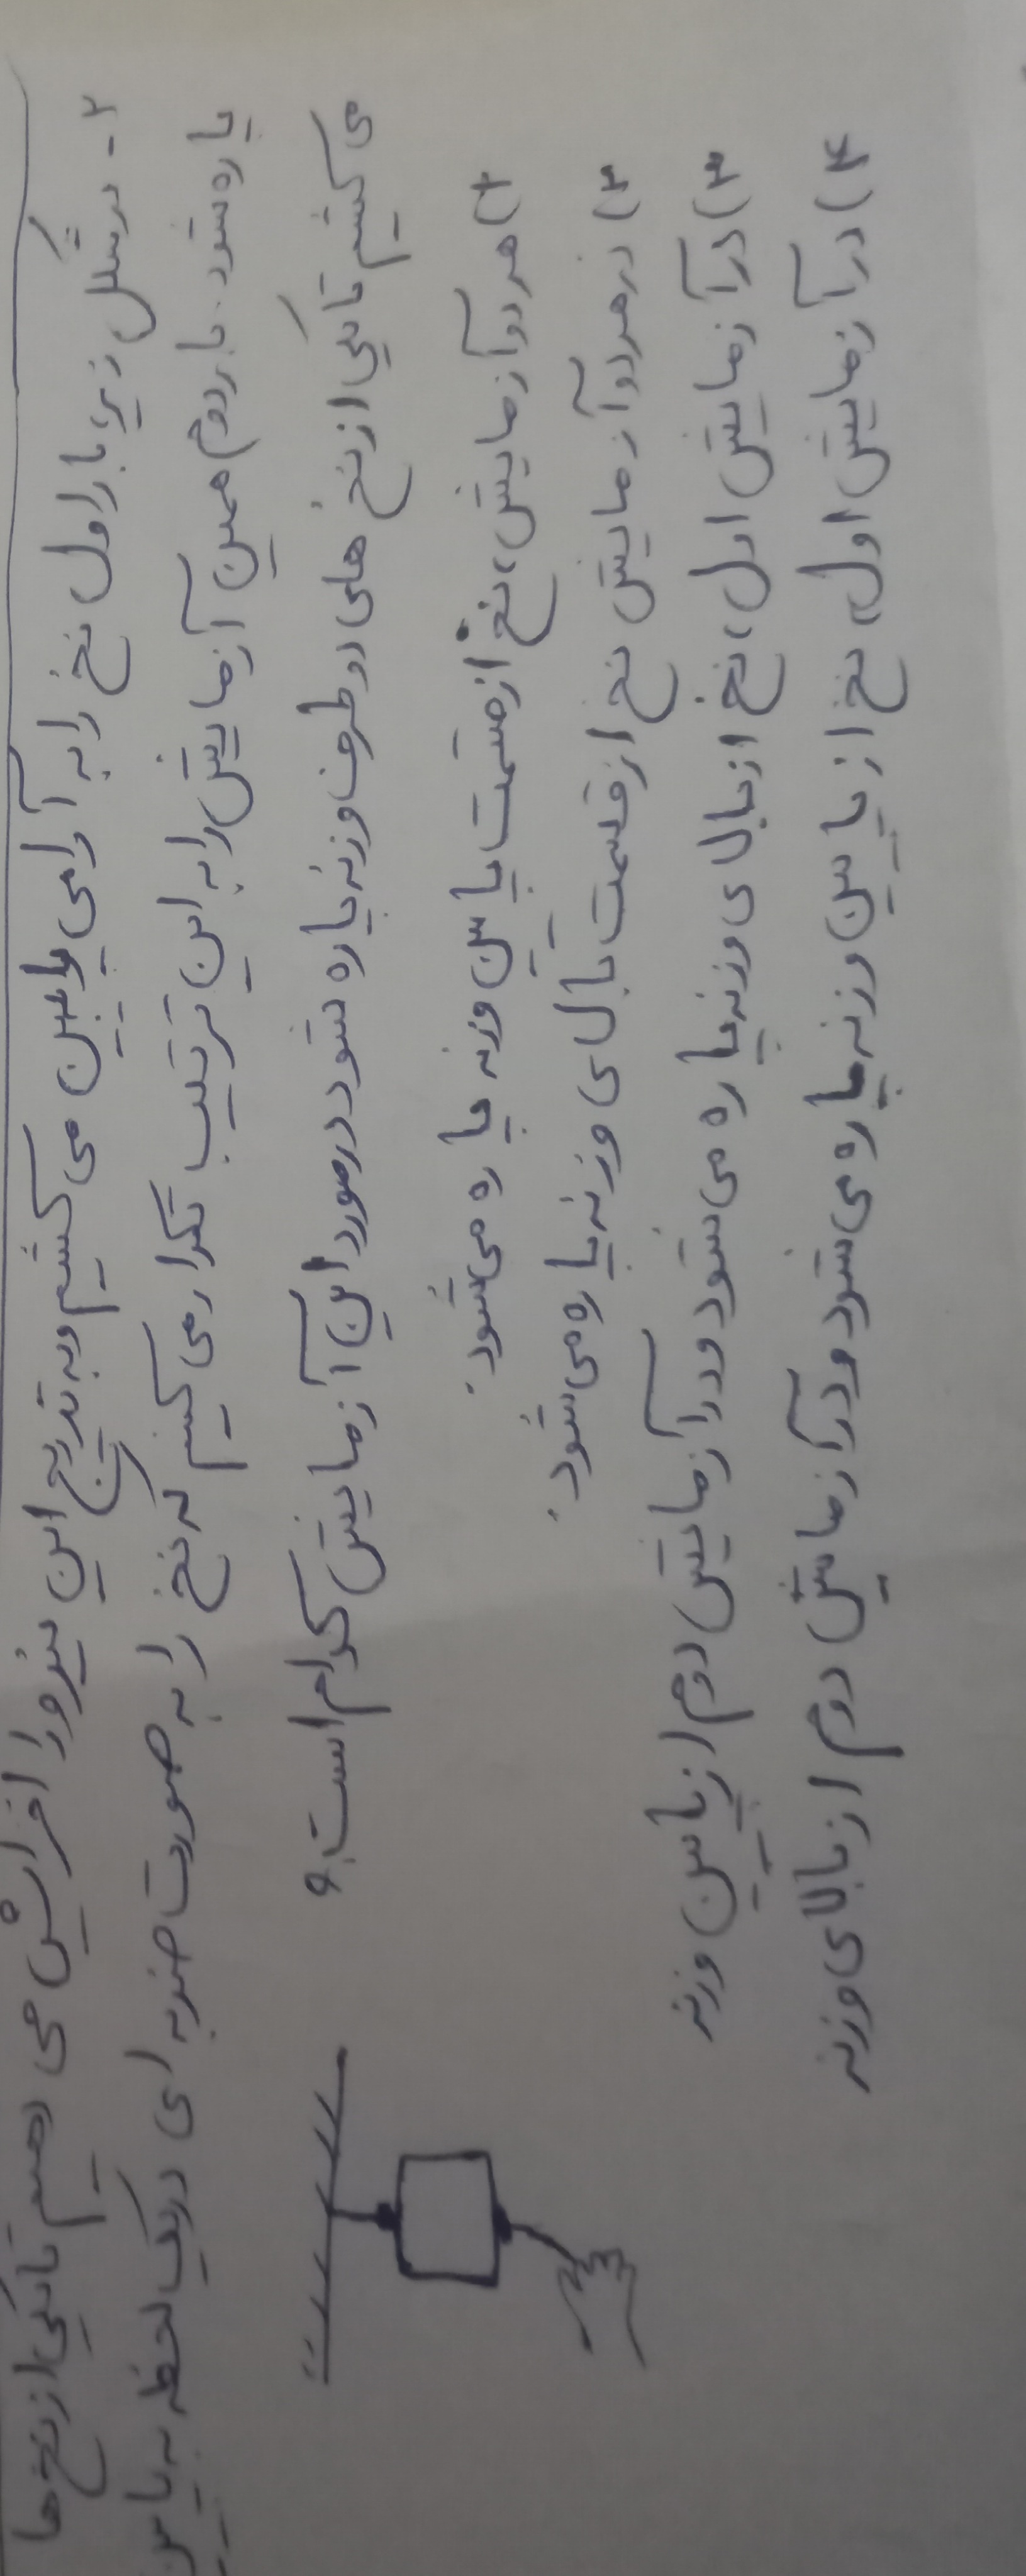 ۲- در شکل زیر، بار اول نخ را به آرامی پایین می کشیم و به تدریج این نیرو را افزایش می دهیم تا یکی از نخ ها
پاره شود. بار دوم همین آزمایش را به این ترتیب تکرار می کنیم که نخ را به صورت ضربه ای در یک لحظه به پایین
می کشیم تا یکی از نخ های دو طرف وزنه پاره شود در مورد این آزمایش کدام است؟
۱) هر دو آزمایش، نخ از قسمت پایین وزنه پاره می شود.
۲) در هر دو آزمایش نخ از قسمت بالای وزنه پاره می شود.
۳) در آزمایش اول، نخ از بالای وزنه پاره می شود و در آزمایش دوم از پایین وزنه
۴) در آزمایش اول، نخ از پایین وزنه پاره می شود و در آزمایش دوم از بالای وزنه